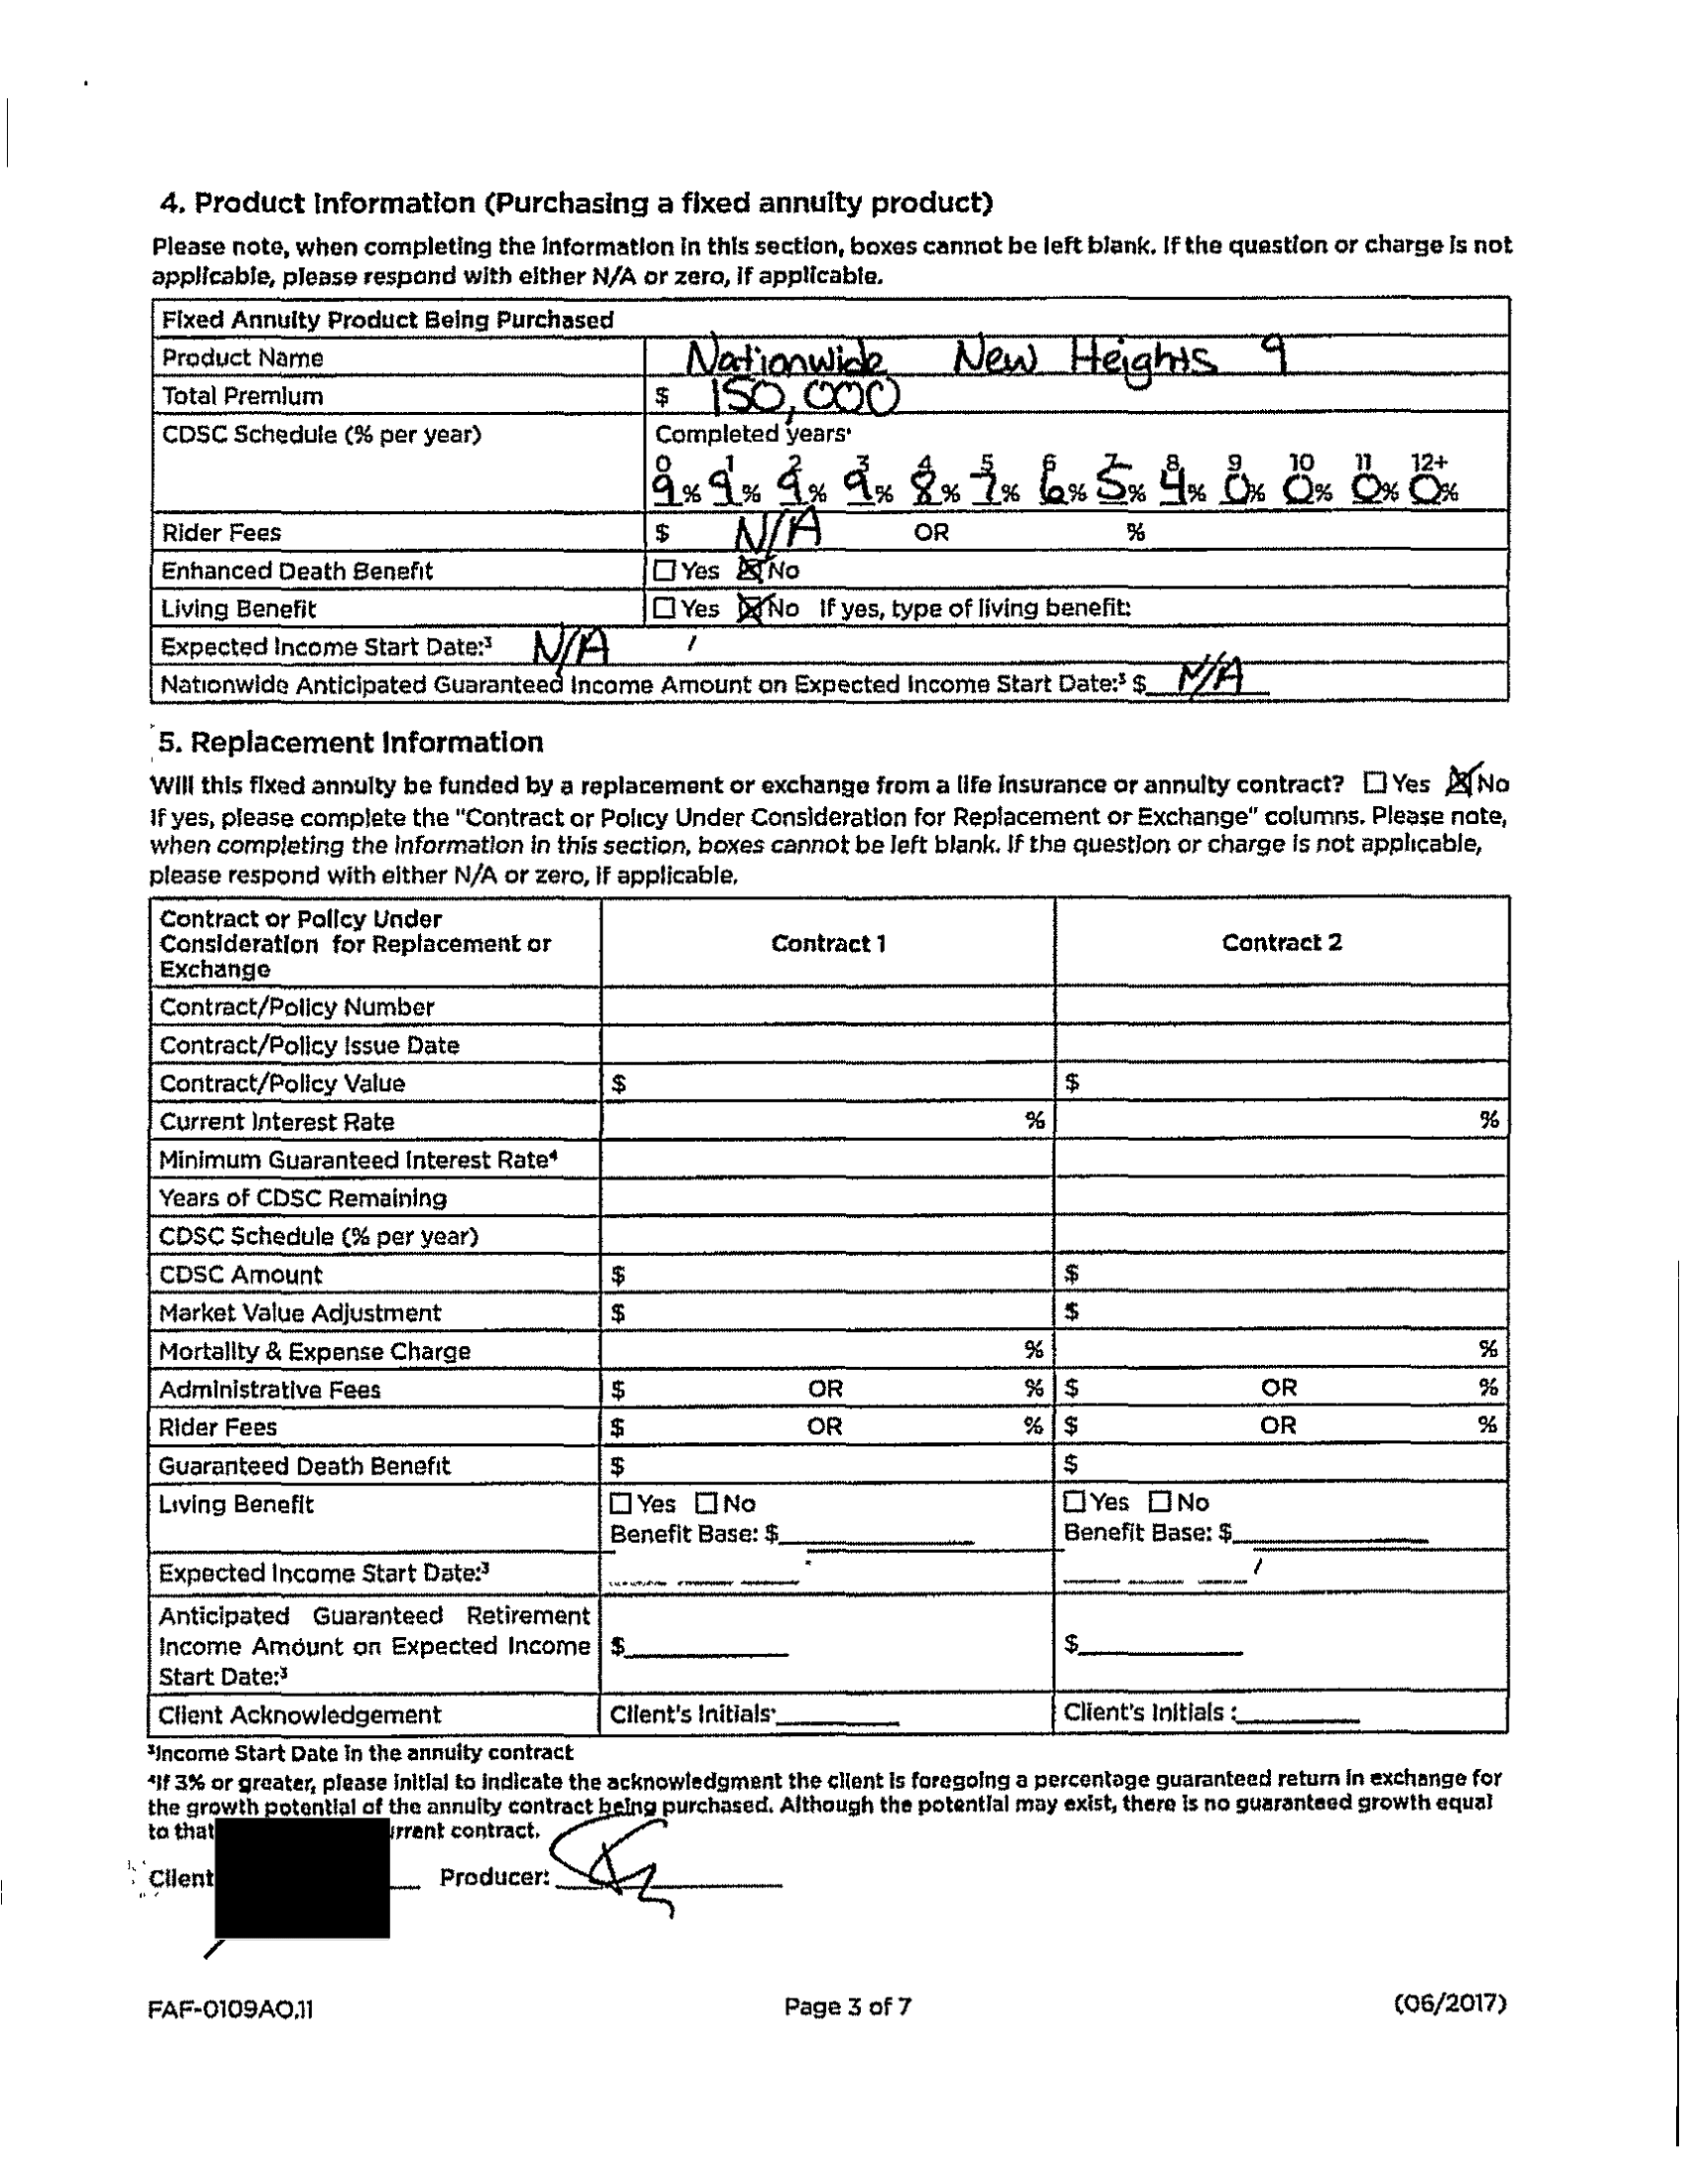 4. Product Information (Purchasing a fixed annuity product)
Please note, when completing the information in this section, boxes cannot be left blank. If the question or charge is not
applicable, please respond with either N/A or zero, if applicable.
Fixed Annuity Product Being Purchased
Product Name Nationwide New Heights 9
Total Premium $ 150,000
CDSC Schedule (% per year) Completed years:
0 1 2 3 4 5 6 7 8 9 10 11 12+
9% 9% 9% 9% 8% 7% 6% 5% 4% 0% 0% 0% 0%
Rider Fees $ N/A OR %
Enhanced Death Benefit ☐ Yes ☒ No
Living Benefit ☐ Yes ☒ No If yes, type of living benefit:
Expected Income Start Date:³ N/A
Nationwide Anticipated Guaranteed Income Amount on Expected Income Start Date:³ $ N/A
5. Replacement Information
Will this fixed annuity be funded by a replacement or exchange from a life insurance or annuity contract? ☐ Yes ☒ No
If yes, please complete the "Contract or Policy Under Consideration for Replacement or Exchange" columns. Please note,
when completing the information in this section, boxes cannot be left blank. If the question or charge is not applicable,
please respond with either N/A or zero, if applicable.
Contract or Policy Under
Consideration for Replacement or
Exchange
Contract 1 Contract 2
Contract/Policy Number
Contract/Policy Issue Date
Contract/Policy Value $ $
Current Interest Rate % %
Minimum Guaranteed Interest Rate⁴
Years of CDSC Remaining
CDSC Schedule (% per year)
CDSC Amount $ $
Market Value Adjustment $ $
Mortality & Expense Charge % %
Administrative Fees $ OR % $ OR %
Rider Fees $ OR % $ OR %
Guaranteed Death Benefit $ $
Living Benefit ☐ Yes ☐ No ☐ Yes ☐ No
Benefit Base: $ Benefit Base: $
Expected Income Start Date:³
Anticipated Guaranteed Retirement
Income Amount on Expected Income $ $
Start Date:³
Client Acknowledgement Client's Initials: Client's Initials :
³Income Start Date in the annuity contract
⁴If 3% or greater, please initial to indicate the acknowledgment the client is foregoing a percentage guaranteed return in exchange for
the growth potential of the annuity contract being purchased. Although the potential may exist, there is no guaranteed growth equal
to that rrent contract.
Client Producer:
FAF-0109AO.11 Page 3 of 7 (06/2017)